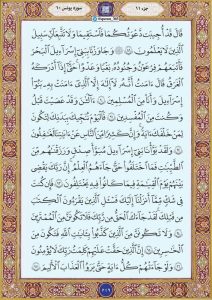 جزء ۱۱
سوره یونس ۱۰
قَالَ قَدْ أُجِيبَت دَّعْوَتُكُمَا فَٱسْتَقِيمَا وَلَا تَتَّبِعَآنِّ سَبِيلَ
ٱلَّذِينَ لَا يَعْلَمُونَ ۝٨٩ وَجَٰوَزْنَا بِبَنِىٓ إِسْرَٰٓءِيلَ ٱلْبَحْرَ
فَأَتْبَعَهُمْ فِرْعَوْنُ وَجُنُودُهُۥ بَغْيًا وَعَدْوًا حَتَّىٰٓ إِذَآ أَدْرَكَهُ
ٱلْغَرَقُ قَالَ ءَامَنتُ أَنَّهُۥ لَآ إِلَٰهَ إِلَّا ٱلَّذِىٓ ءَامَنَتْ بِهِۦ بَنُوٓا۟
إِسْرَٰٓءِيلَ وَأَنَا۠ مِنَ ٱلْمُسْلِمِينَ ۝٩٠ ءَآلْـَٰٔنَ وَقَدْ عَصَيْتَ قَبْلُ
وَكُنتَ مِنَ ٱلْمُفْسِدِينَ ۝٩١ فَٱلْيَوْمَ نُنَجِّيكَ بِبَدَنِكَ لِتَكُونَ
لِمَنْ خَلْفَكَ ءَايَةً وَإِنَّ كَثِيرًا مِّنَ ٱلنَّاسِ عَنْ ءَايَٰتِنَا لَغَٰفِلُونَ
۝٩٢ وَلَقَدْ بَوَّأْنَا بَنِىٓ إِسْرَٰٓءِيلَ مُبَوَّأَ صِدْقٍ وَرَزَقْنَٰهُم مِّنَ
ٱلطَّيِّبَٰتِ فَمَا ٱخْتَلَفُوا۟ حَتَّىٰ جَآءَهُمُ ٱلْعِلْمُ إِنَّ رَبَّكَ يَقْضِى
بَيْنَهُمْ يَوْمَ ٱلْقِيَٰمَةِ فِيمَا كَانُوا۟ فِيهِ يَخْتَلِفُونَ ۝٩٣ فَإِن كُنتَ
فِى شَكٍّ مِّمَّآ أَنزَلْنَآ إِلَيْكَ فَسْـَٔلِ ٱلَّذِينَ يَقْرَءُونَ ٱلْكِتَٰبَ
مِن قَبْلِكَ لَقَدْ جَآءَكَ ٱلْحَقُّ مِن رَّبِّكَ فَلَا تَكُونَنَّ مِنَ ٱلْمُمْتَرِينَ
۝٩٤ وَلَا تَكُونَنَّ مِنَ ٱلَّذِينَ كَذَّبُوا۟ بِـَٔايَٰتِ ٱللَّهِ فَتَكُونَ مِنَ
ٱلْخَٰسِرِينَ ۝٩٥ إِنَّ ٱلَّذِينَ حَقَّتْ عَلَيْهِمْ كَلِمَتُ رَبِّكَ لَا يُؤْمِنُونَ
۝٩٦ وَلَوْ جَآءَتْهُمْ كُلُّ ءَايَةٍ حَتَّىٰ يَرَوُا۟ ٱلْعَذَابَ ٱلْأَلِيمَ ۝٩٧
۲۱۹